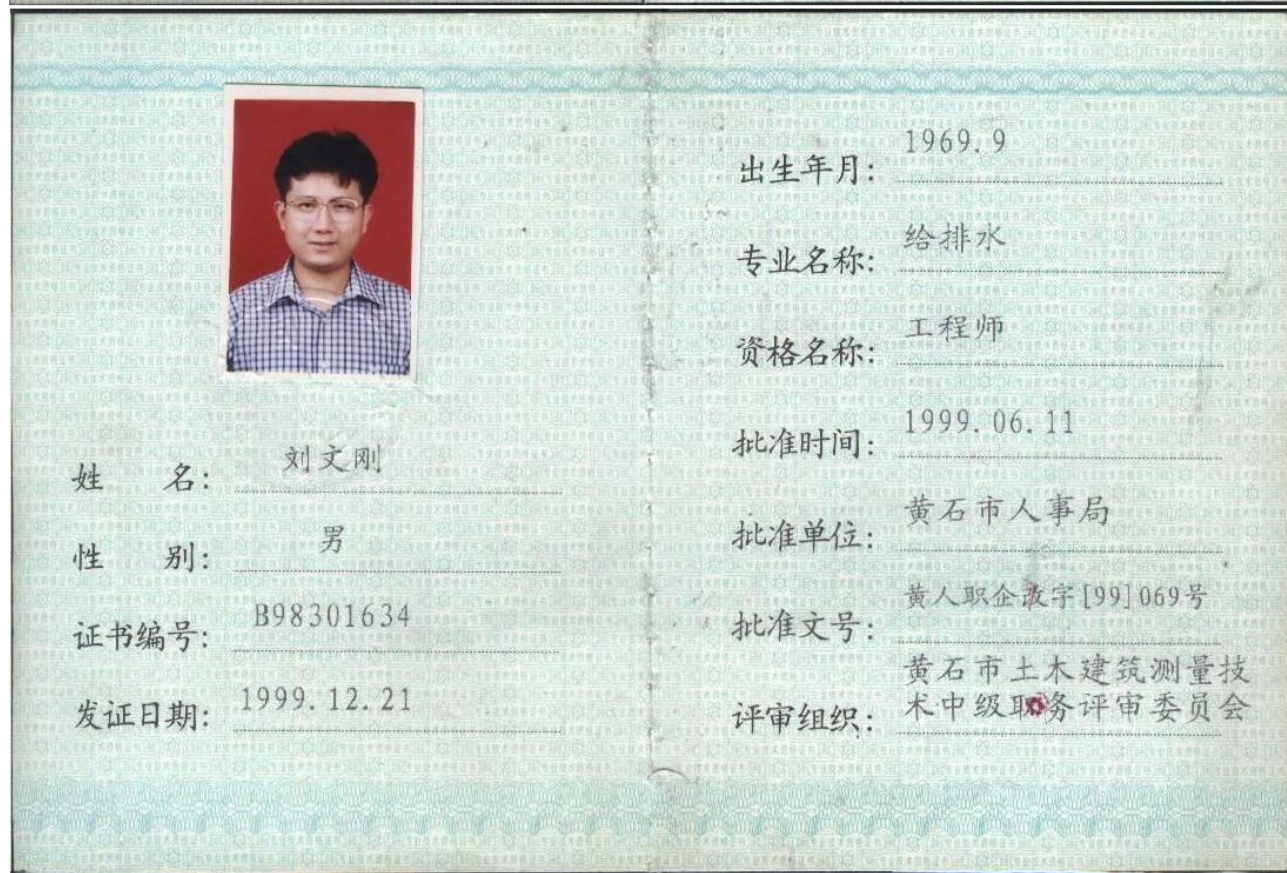 姓 名: 刘文刚
性 别: 男
证书编号: B98301634
发证日期: 1999.12.21
出生年月: 1969.9
专业名称: 给排水
资格名称: 工程师
批准时间: 1999.06.11
批准单位: 黄石市人事局
批准文号: 黄人职企改字[99]069号
评审组织: 黄石市土木建筑测量技
术中级职务评审委员会